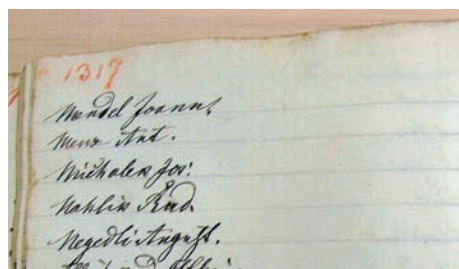 1317
Mendel Joann,
Menz Ant.
Michalek Jos:
Nahlik Rud.
Negedli August.